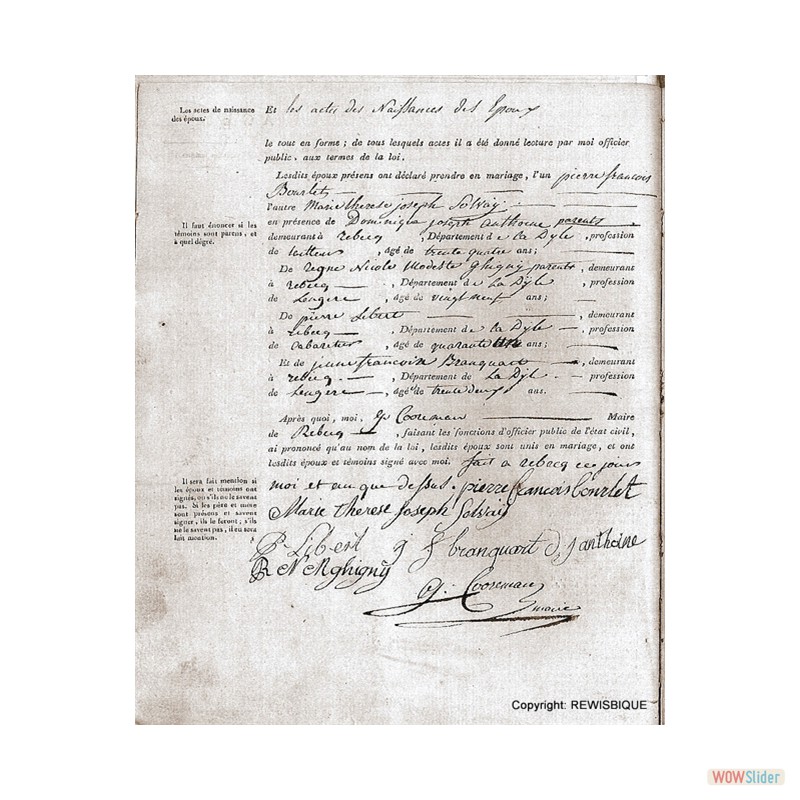 Les actes de naissance
des époux.
Et les actes des Naissances des Epoux
le tout en forme ; de tous lesquels actes il a été donné lecture par moi officier
public, aux termes de la loi.
Lesdits époux présens ont déclaré prendre en mariage, l'un pierre francois
Bourlet
l'autre Marie therese joseph Solvay
Il faut énoncer si les
témoins sont parens, et
à quel dégré.
en présence de Dominique joseph anthoine parents
demeurant à Rebecq, Département de la Dyle, profession
de, agé de trente quatre ans ;
De Regne Nicole Modeste ghigny parents, demeurant
à rebecq, Département de La Dyle, profession
de, agé de vingt neuf ans ;
De pierre Libert, demeurant
à rebecq, Département de la Dyle, profession
de Cabaretier, agé de quarante ans ;
Et de francoise Branquart, demeurant
à rebecq, Département de La Dyle, profession
de, agé de trente deux ans.
Après quoi, moi, g Cooreman Maire
de Rebecq, faisant les fonctions d'officier public de l'état civil,
ai prononcé qu'au nom de la loi, lesdits époux sont unis en mariage, et ont
lesdits époux et témoins signé avec moi. fait a rebecq ce jour
Il sera fait mention si
les époux et témoins ont
signés, ou s'ils ne le savent
pas. Si les père et mère
sont présens et savent
signer, ils le feront ; s'ils
ne le savent pas, il en sera
fait mention.
moi et an que dessus. pierre francois bourlet
Marie therese Joseph Solvay
P. Libert g f branquart D j anthoine
R N M ghigny
g. Cooreman
maire
Copyright: REWISBIQUE
WOWSlider